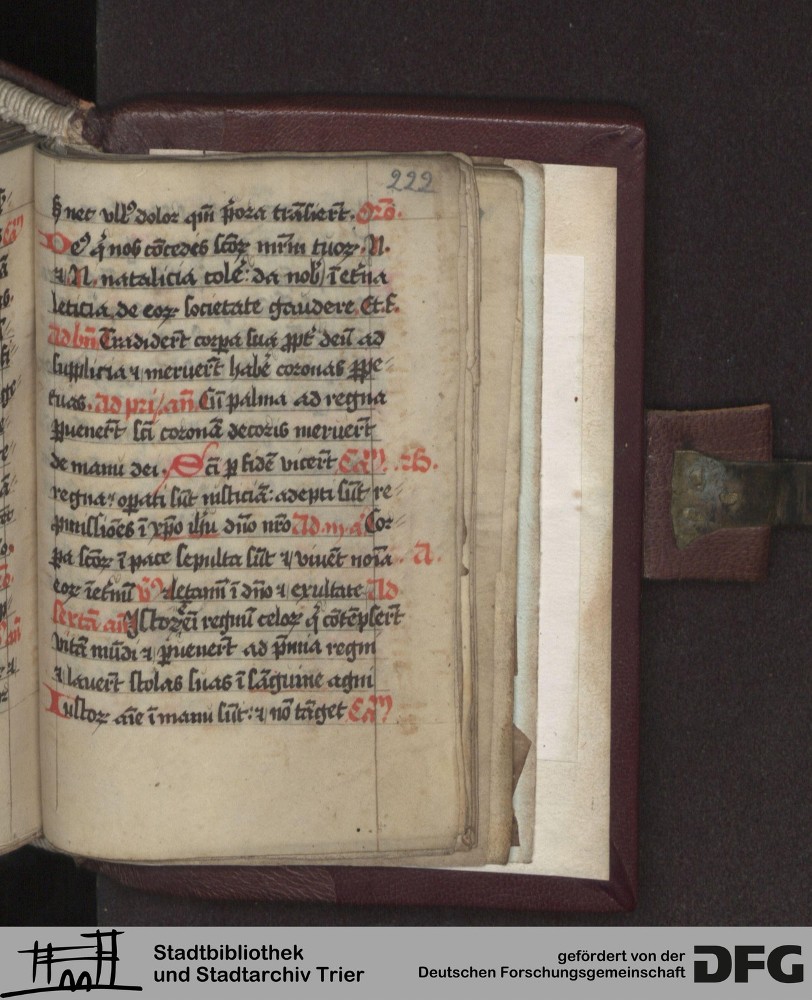 222
h̄ nec vllꝰ dolor qm̄ p̄ora trāsierūt. Orō.
Deꝰ q̄ nos cōcedis scōꝝ mr̄m tuoꝝ .N.
⁊ .N. natalicia colẽ: da nob̄ ī et̄na
leticia de eoꝝ societate gaudere. Et. f.
Ad bn̄ Tradidert̄ corpa sua ꝓpt̾ deū ad
supplicia ⁊ meruert̄ habẽ coronas ꝑpe
tuas. Ad pri. an̄. Cū palma ad regna
ꝑuenert̄ sc̄i coronā decoris meruert̄
de manu dei. Sc̄i ꝑ fidē vicert̄ Ca.
regna: opati sūt iusticiā: adepti sūt re
pmissiōes ī xp̄o ih̄u dn̄o nr̄o Ad .iij. a. Cor
pa scōꝝ ī pace sepulta sūt ⁊ viuēt noīa
eoꝝ īet̄nū V̄ Letamī ī dn̄o ⁊ exultate Ad
sextā an̄ Istoꝝ eī regnū celoꝝ q̄ cōtēpsert̄
vitā mūdi ⁊ ꝑuenert̄ ad p̄mia regni
⁊ lauert̄ stolas suas ī sāguine agni
Iustoꝝ aīe ī manu sūt: ⁊ nō tāget Ca.
Stadtbibliothek
und Stadtarchiv Trier
gefördert von der
Deutschen Forschungsgemeinschaft
DFG